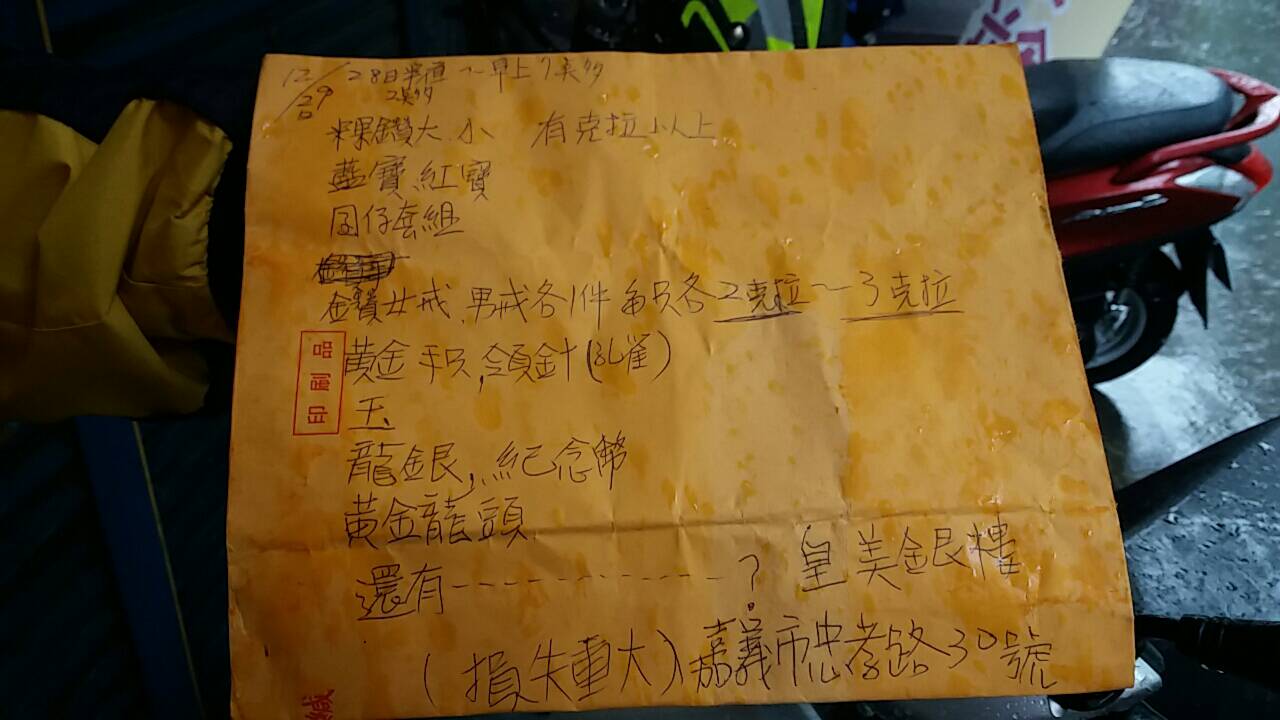 12/29日 28日半夜2點多~早上7點多
粿鑽大小 有克拉以上
藍寶、紅寶
囝仔套組
金鑽女戒、男戒各1件 每只各2克拉~3克拉
黃金手只,領針(孔雀)
玉
龍銀,紀念幣
黃金龍頭
還有------------? 皇美銀樓
(損失重大)嘉義市忠孝路30號
印刷品
緘